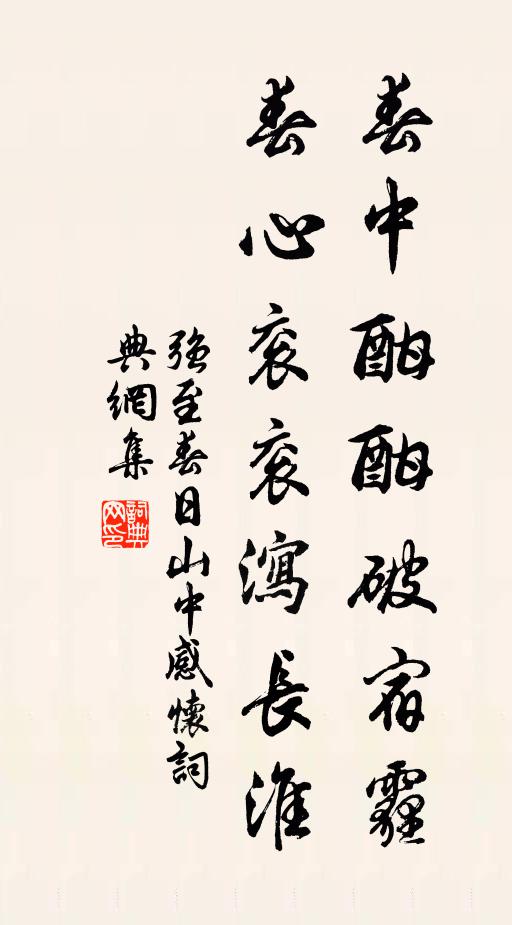 春中酣酣破宿霾
春心衮衮瀉長淮
強至春日山中感懷詞
典網集
詞典網印